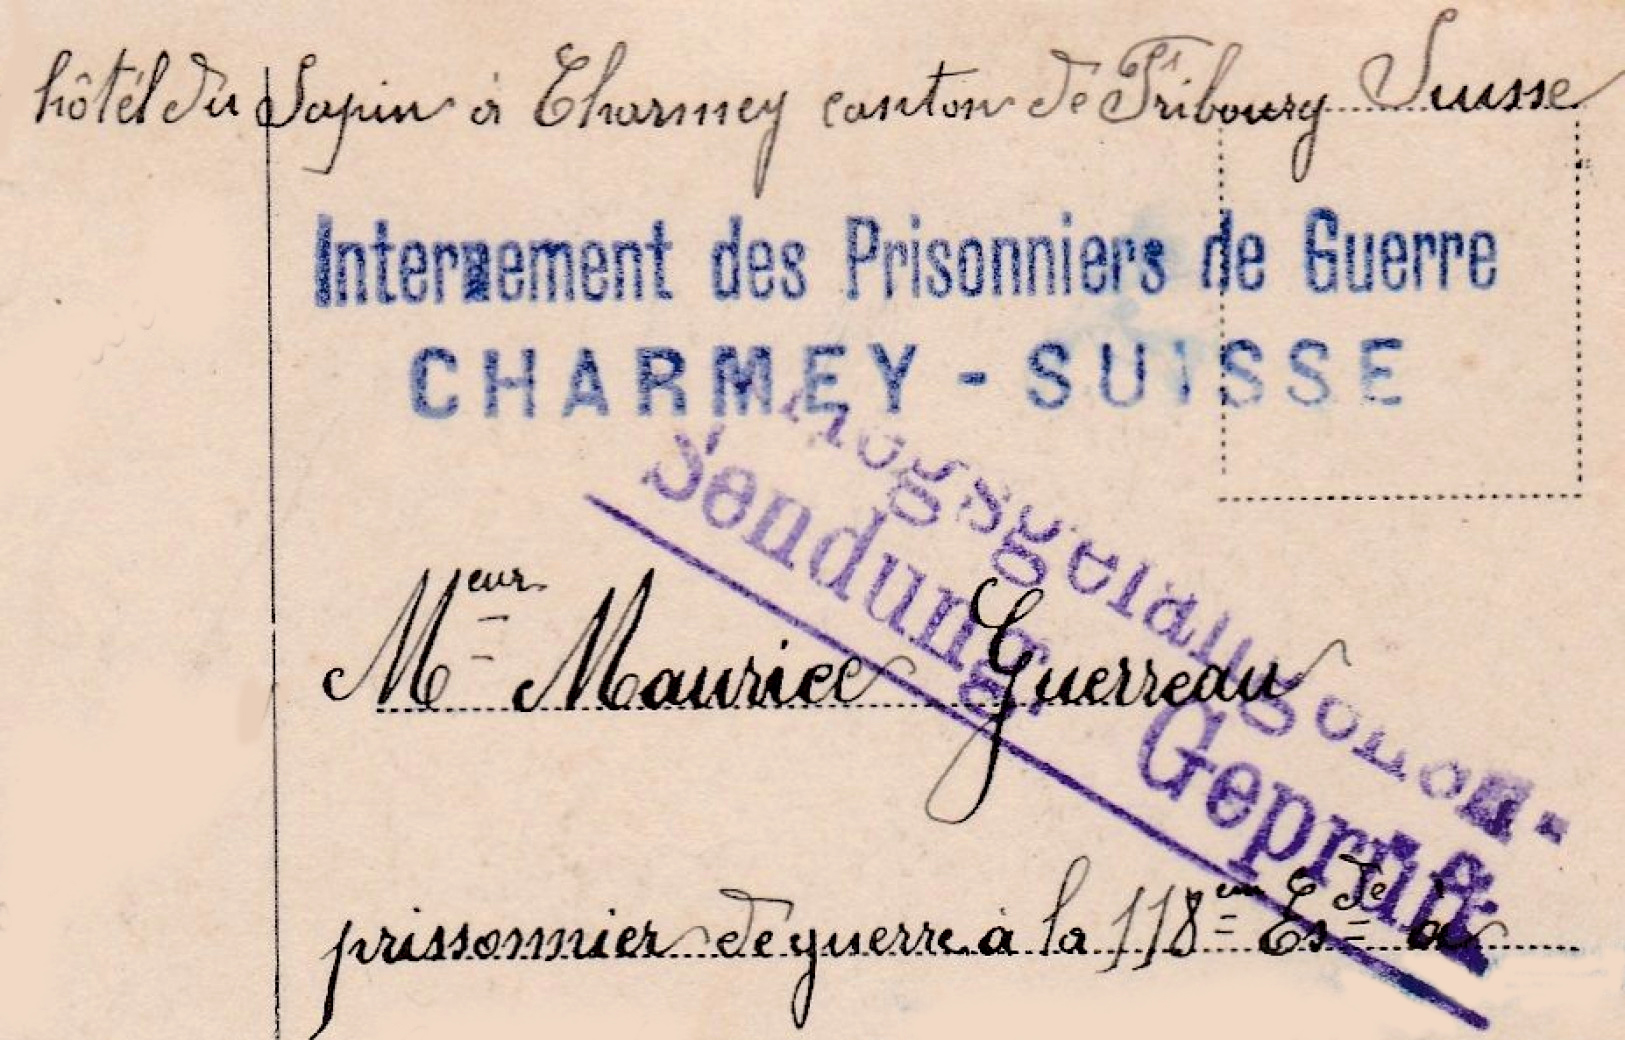 hôtel du Sapin à Charmey canton de Fribourg Suisse
Internement des Prisonniers de Guerre
CHARMEY - SUISSE
Kriegsgefangenen-
Sendung. Geprüft
Meur Maurice Guerreau
prissonnier de guerre à la 118em Es de à